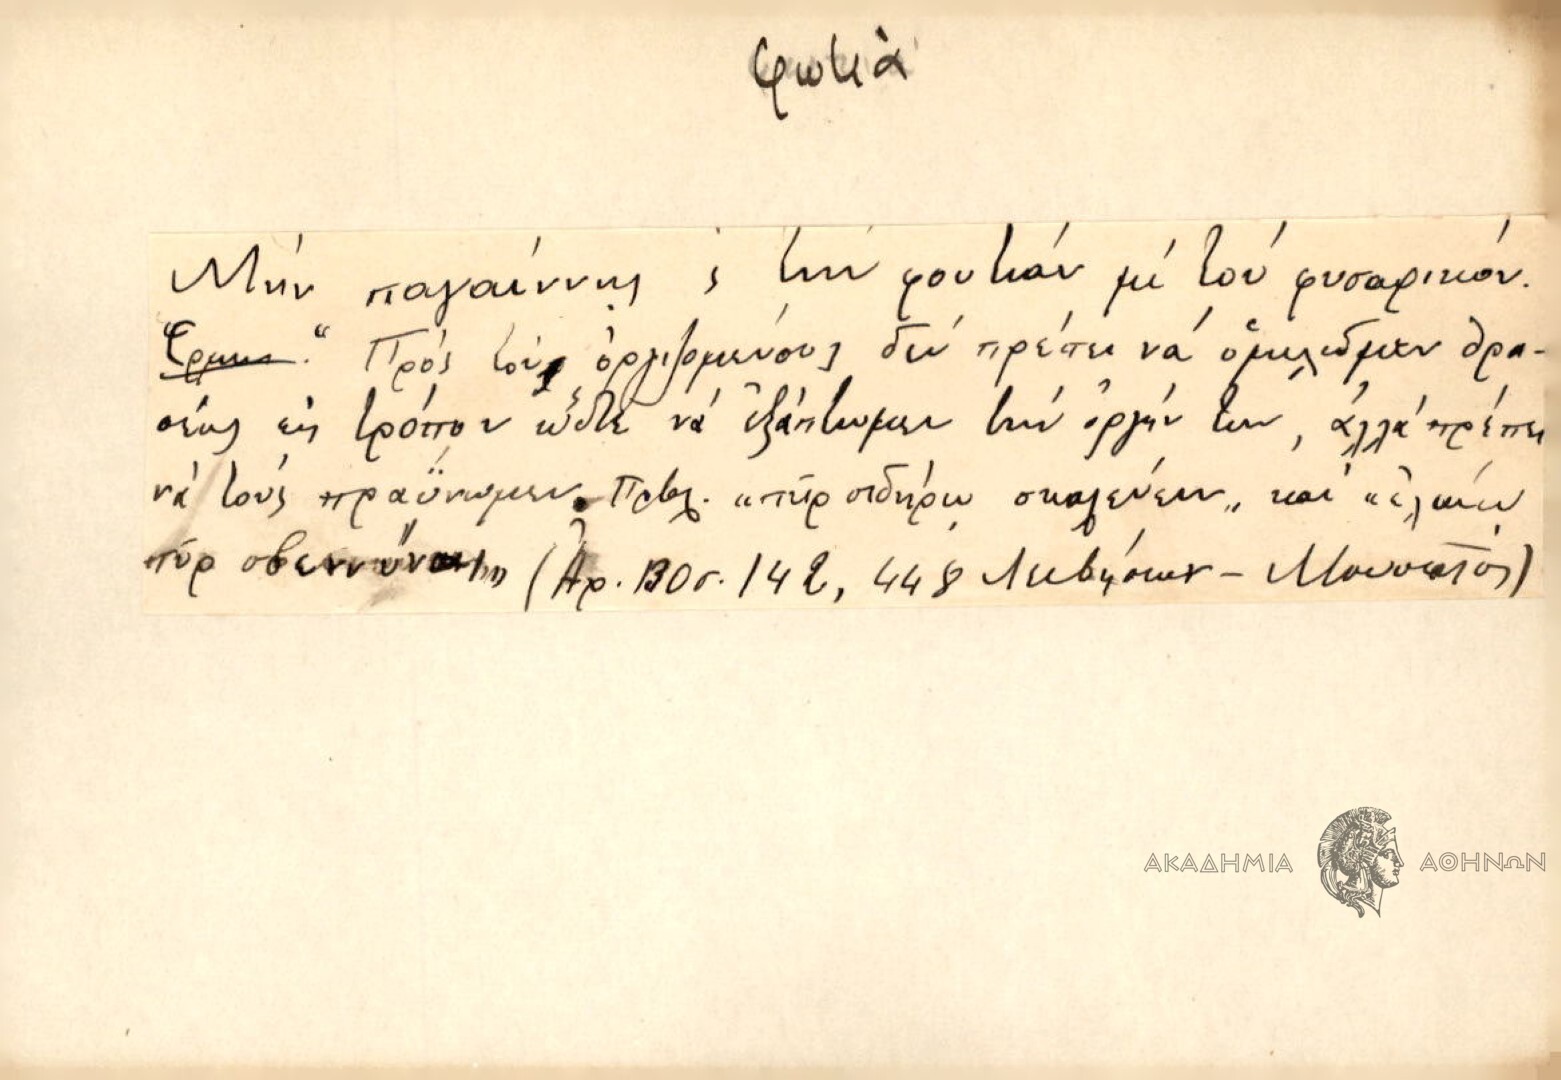 φωτιά
Μήν παγαίννης ς τήν φουτιάν μέ τού φυσαρικόν.
Ἑρμην. Πρός τούς ὀργιζομένους δέν πρέπει νά ὁμιλῶμεν θρα-
σέως εἰς τρόπον ὥστε νά ἐξάπτωμεν τήν ὀργήν των, ἀλλά πρέπει
νά τούς πραΰνωμεν. Πρβλ. "πῦρ σιδήρῳ σκαλεύειν" καί "ἐλαίῳ
πῦρ σβεννύναι" (Ἀρ. 130 σ. 142, 448 Λιβήσιον -